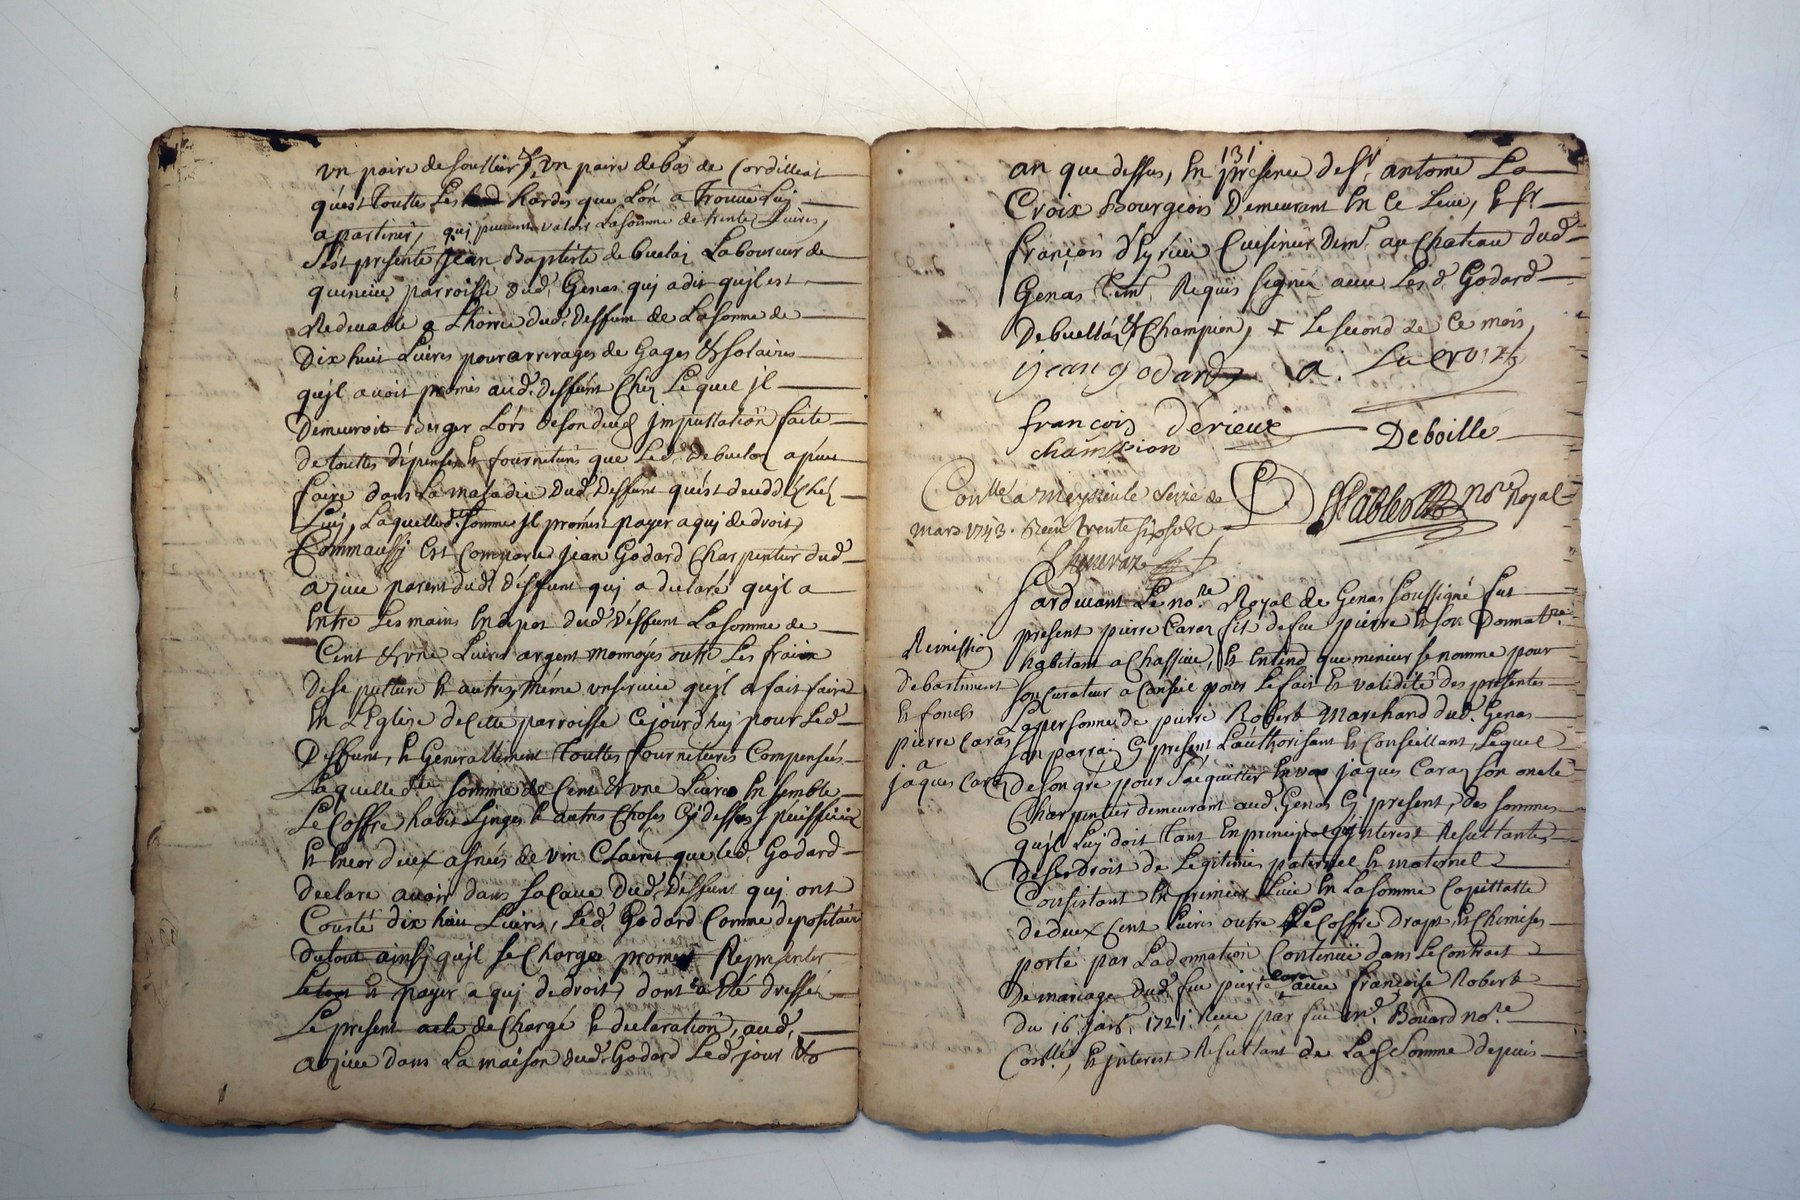 un paire de soullier, & un paire de bas de Cordilliat
quest touttes Les hardes que Lon a trouvé luy
apartenir, quj peuvent valoir La somme de trente Livres,
S'est presenté Jean Baptiste de Buclaz Laboureur de
parroisse dud. Genas quj a dit qu'jl est
Redevable a L'hoirie dud. deffunt de La somme de
Dix huit Livres pour arrerages de Gages & solaires
qu'jl avoit promis aud. deffunt Chez Lequel jl
Demeuroit Berger Lors de son deces jmputtation faite
de touttes dépenses & fournitures que Led. de buclaz a peu
faire dans La maladie dud. deffunt quest decedé Chez
Luy, Laquelle de. somme jl promet payer a quj de droit,
Comm'aussy Est Comparu Jean Godard Charpentier dud.
azieu parent dud. deffunt quj a declaré qu'jl a
Entre Les mains En depot dud. deffunt La somme de
Cent & une Livres argent monnoyés outre Les fraix
De sepulture & autres, même un service qu'jl a fait faire
En L'Eglise de Cette parroisse Ce jourd'huy pour Led.
Deffunt, & Generallement touttes fournitures Compensés
Laquelle de. somme de Cent & une Livres En semble
Le Coffre habit Linges & autres Choses Cy dessus
& Encor deux asnées de vin Clairet que Led. Godard
declare avoir dans sa Cave dud. deffunt quj ont
Couté dix huit Livres, Led. Godard Comme depositaire
du tout ainsy qu'jl se Charge promet Representer
Le tout & payer a quj de droit, dont a Eté dressé
Le present acte de Charge & declaration, aud.
azieu dans La maison dud. Godard Led. jour &
131
an que dessus, En presence de Sr. antoine La
Croix Bourgeois Demeurant En Ce Lieu, & Sr.
françois Cuisinier Demt. au Chateau dud.
Genas tem. Requis signé avec Lesd. Godard
De buclaz & Champion, Le second de Ce mois,
jean godard a. La croix
françois derieux Deboille
champion
Conllé a Meyzieu le seize
mars 1743. Receu trente six sols
Nore Royal
Pardevant Le nore. Royal de Genas soussigné fut
present pierre Caraz fils de feu pierre & son Donnatre.
habitant a Chassieu, & Entend que mineur se nomme pour
son Curateur a Conseil pour Le fait & validité des presentes
La personne de pierre Robert Marchand dud. Genas
son parrain Cy present L'authorisant & Conseillant, Lequel
de son gré pour s'acquitter Envers jaques Caraz son oncle
Charpentier demeurant aud. Genas Cy present, des sommes
qu'jl Luy doit tant En principal qu'jnterest Resultantes
De ses Droit de Legitimes paternel & maternel
Consistant En premier Lieu En La somme Capittalle
de deux Cent Livres outre Le Coffre Draps & Chemises
porté par La donnation Contenüe dans Le Contract
De mariage dud. feu pierre Caraz avec françoise Robert
Du 16 janv. 1721. Receu par feu me. Bouard nore.
Conllé, & jnterest Resultant de Lade. Somme depuis
Remission
de bastiment
& fonds
pierre Caraz
a
jaques Caraz